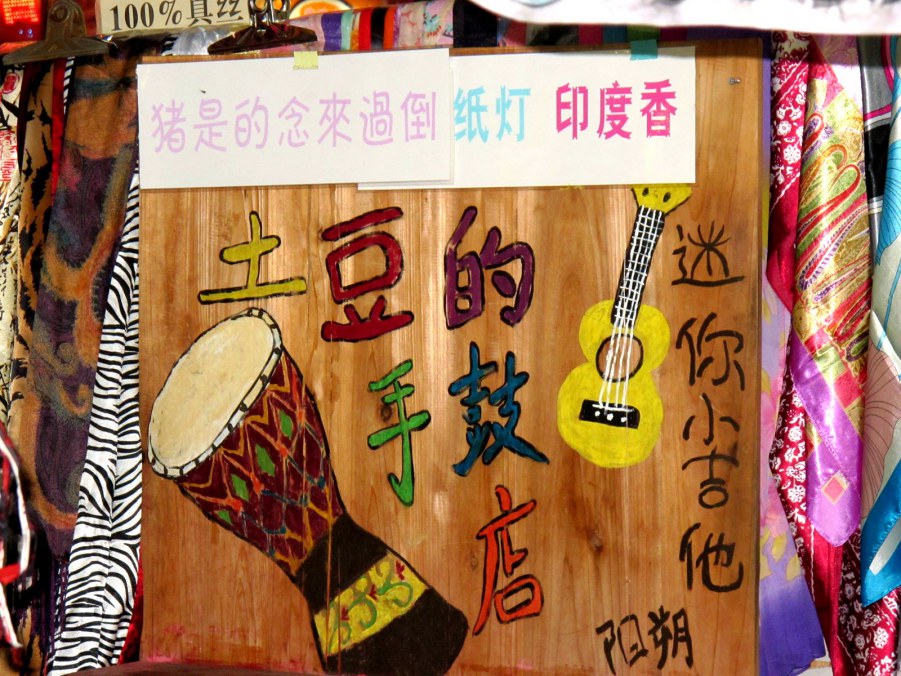 100%真丝
猪是的念來過倒 纸灯 印度香
土豆的
手鼓
店
迷你小吉他
阳朔